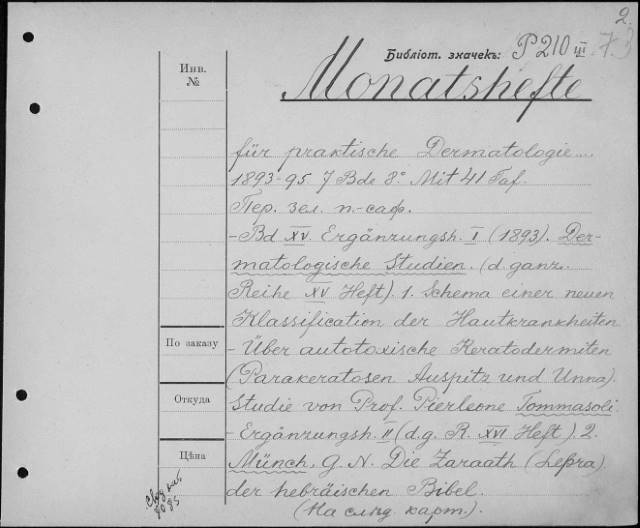 2.
Библіот. значекъ: P 210 III 7.3
Инв.
№
Monatshefte
für praktische Dermatologie...
1893-95. 7 Bde 8° Mit 41 Taf.
Пер. зел. п.-саф.
- Bd XV. Ergänzungsh. I (1893). Der-
matologische Studien. (d. ganz.
Reihe XV Heft). 1. Schema einer neuen
Klassification der Hautkrankheiten
По заказу
- Über autotoxische Keratodermiten
(Parakeratosen Auspitz und Unna).
Откуда
Studie von Prof. Pierleone Tommasoli.
- Ergänzungsh. II (d. g. R. XVI Heft). 2.
Цѣна
Münch, G. N. Die Zaraath (Lepra)
der hebräischen Bibel.
(На слѣд. карт.).